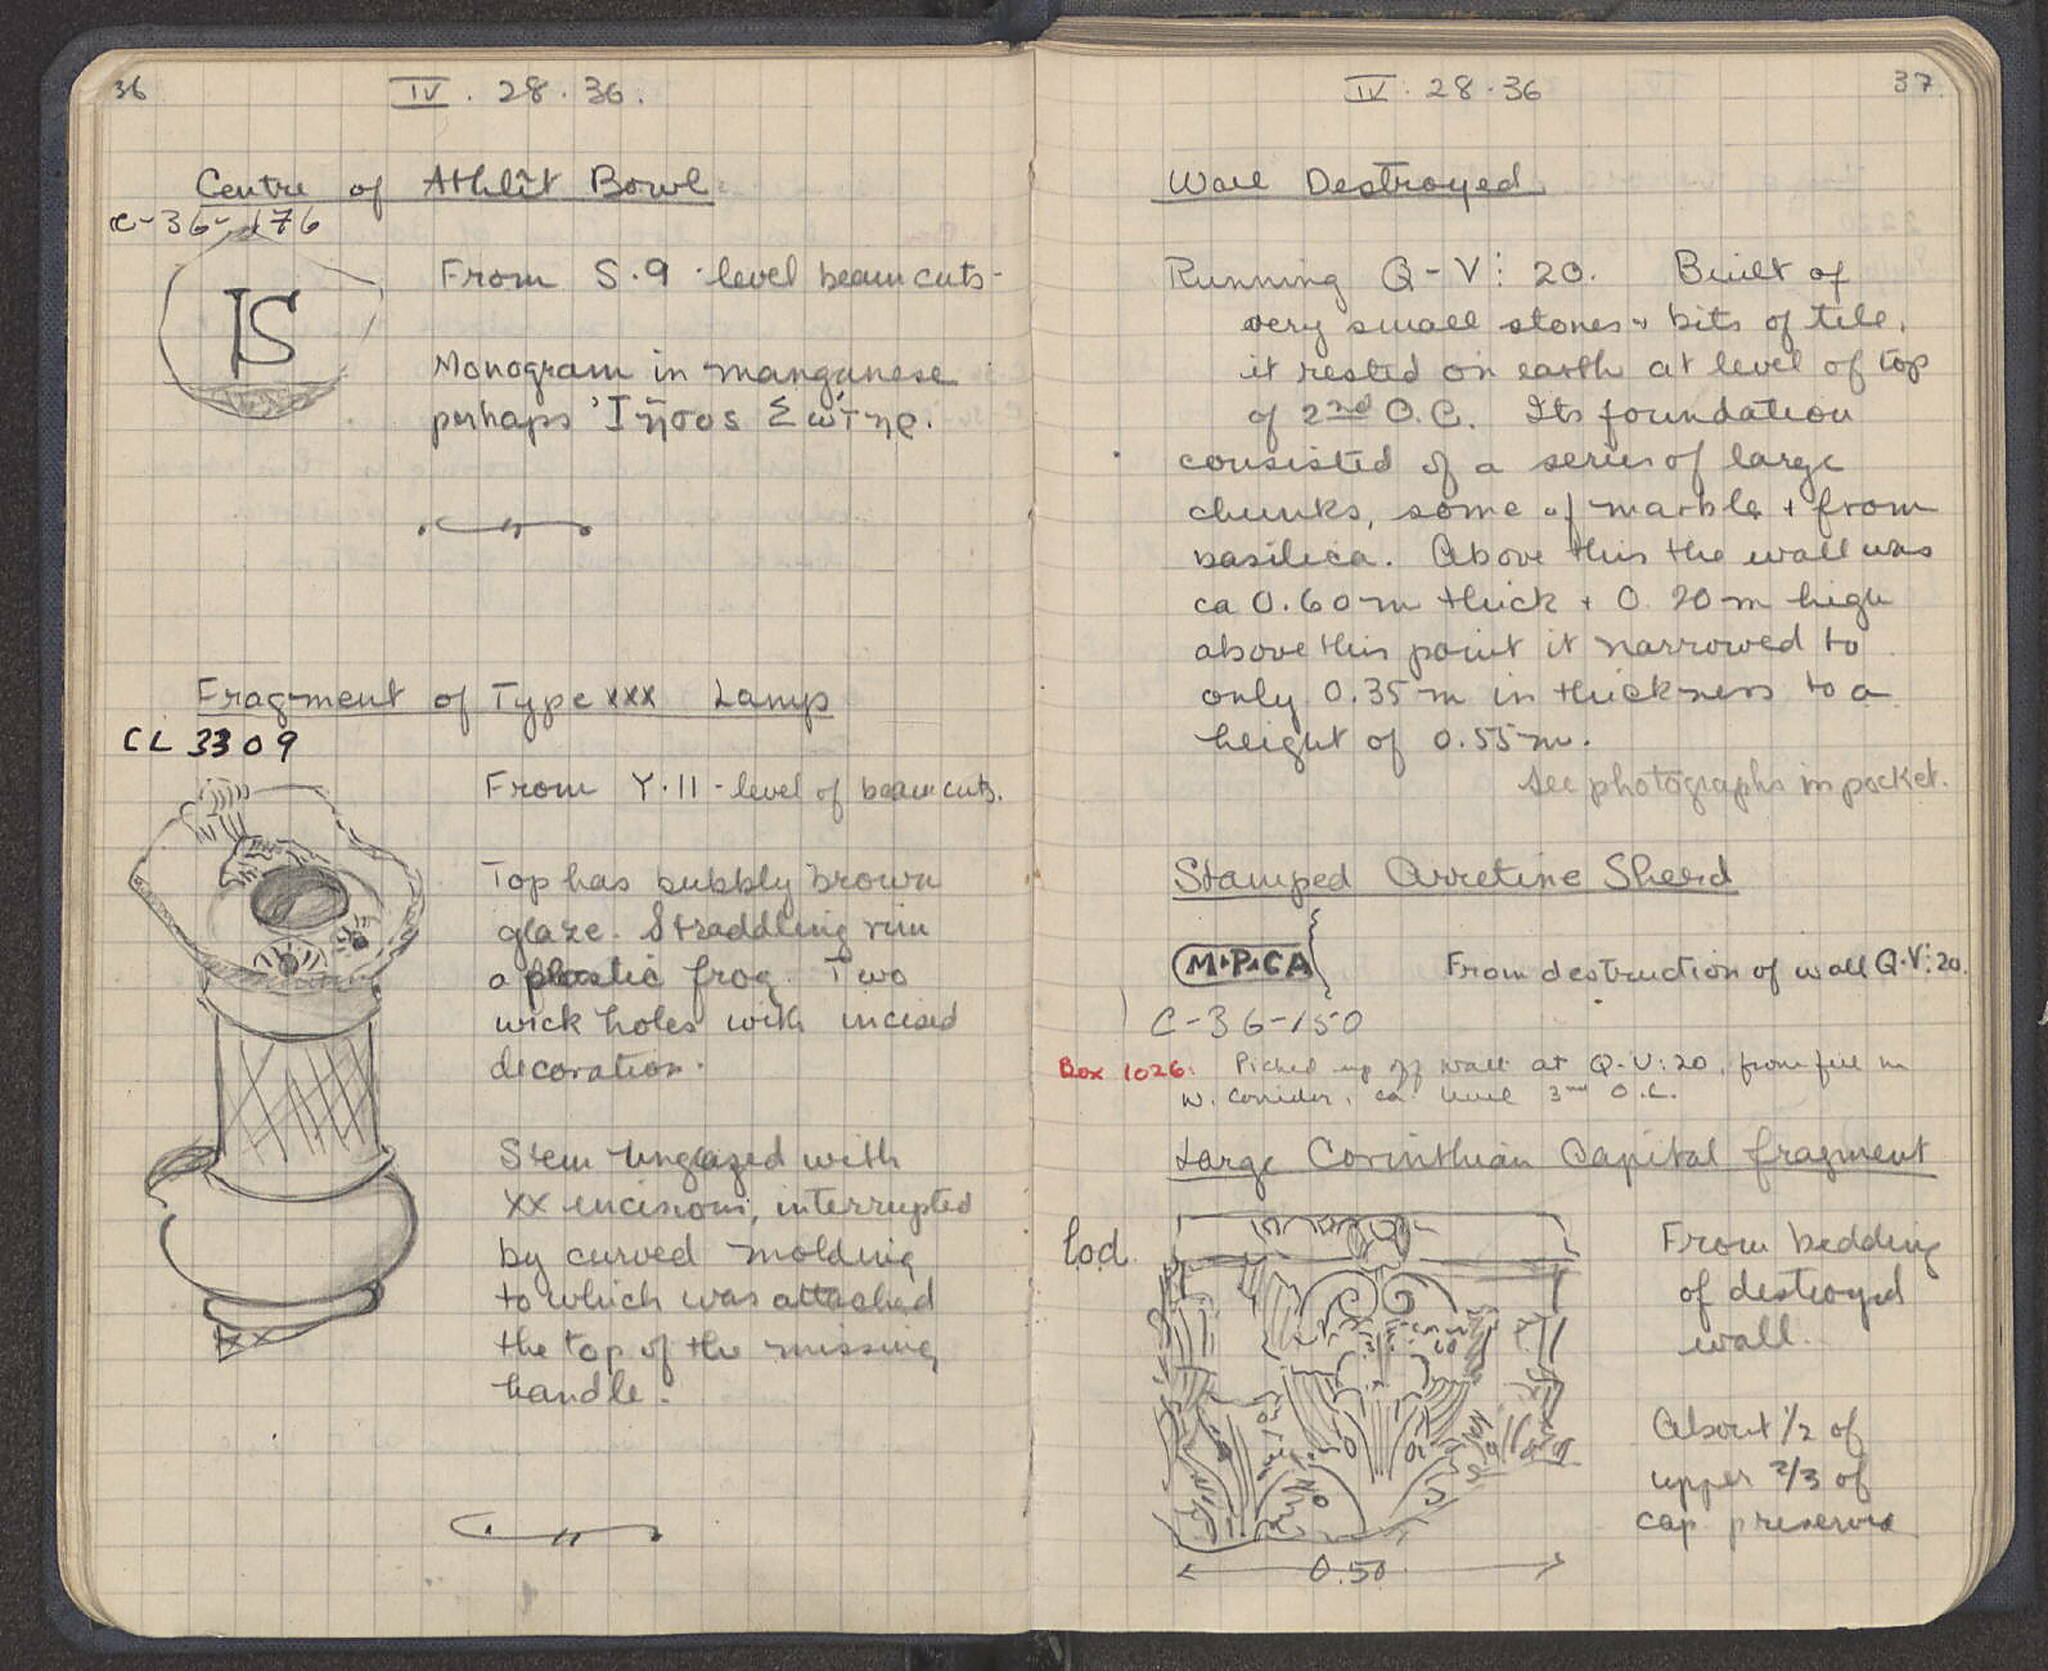 36
IV . 28 . 36 .
Centre of Athlît Bowl
C-36-176
IS
From S.9 · level beam cuts -
Monogram in manganese
perhaps Ἰησος Σωτηρ.
Fragment of Type XXX Lamp
CL 3309
From Y·11 - level of beam cuts.
Top has bubbly brown
glaze. Straddling rim
a plastic frog. Two
wick holes with incised
decoration.
Stem unglazed with
XX incisions, interrupted
by curved molding
to which was attached
the top of the missing
handle.
IV . 28 . 36
37
Wall Destroyed
Running Q-V: 20. Built of
very small stones + bits of tile,
it rested on earth at level of top
of 2nd O.C. Its foundation
consisted of a series of large
chunks, some of marble + from
basilica. Above this the wall was
ca 0.60 m thick + 0.20 m high
above this point it narrowed to
only 0.35 m in thickness to a
height of 0.55 m.
See photographs in pocket.
Stamped Arretine Sherd
M·P·CA
From destruction of wall Q-V: 20.
C-36-150
Box 1026: Picked up off wall at Q-V: 20, from fill in
W. Corridor, ca. level 3rd O.C.
Large Corinthian Capital fragment
Lod.
From bedding
of destroyed
wall.
About 1/2 of
upper 2/3 of
cap preserved
0.50